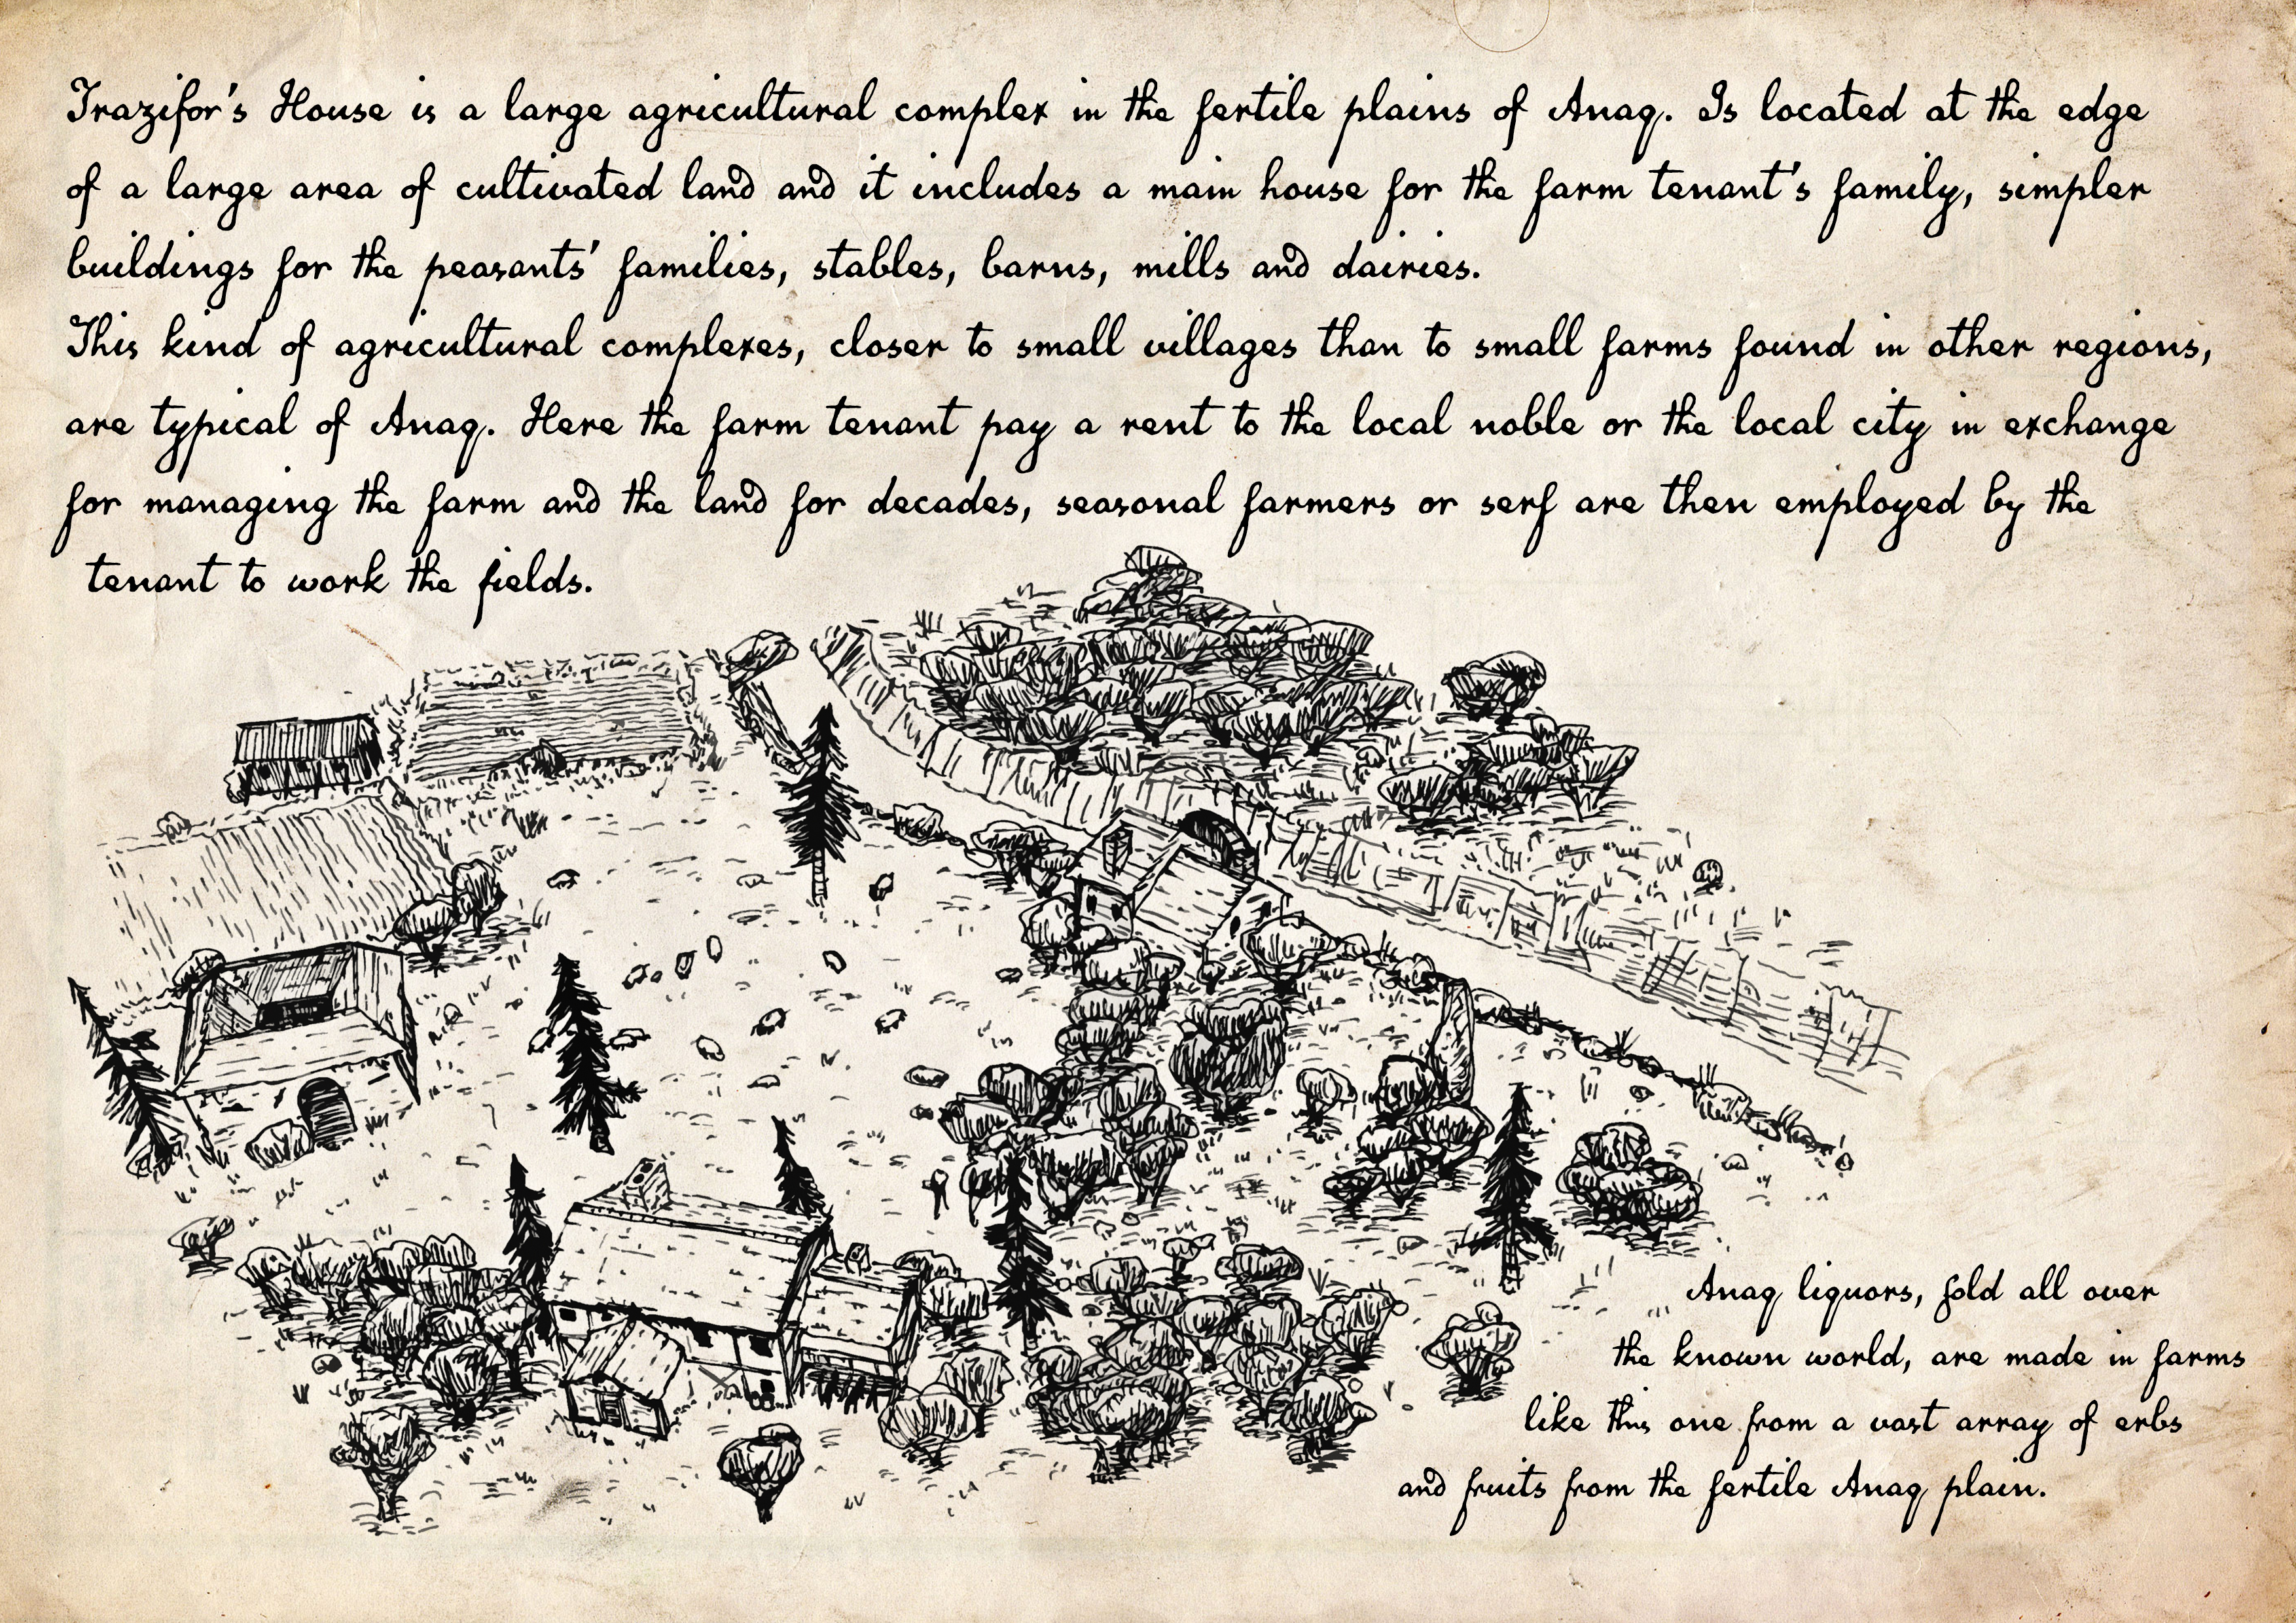 Trazifor's House is a large agricultural complex in the fertile plains of Anaq. Is located at the edge
of a large area of cultivated land and it includes a main house for the farm tenant's family, simpler
buildings for the peasants' families, stables, barns, mills and dairies.
This kind of agricultural complexes, closer to small villages than to small farms found in other regions,
are typical of Anaq. Here the farm tenant pay a rent to the local noble or the local city in exchange
for managing the farm and the land for decades, seasonal farmers or serf are then employed by the
tenant to work the fields.
Anaq liquors, sold all over
the known world, are made in farms
like this one from a vast array of erbs
and fruits from the fertile Anaq plain.